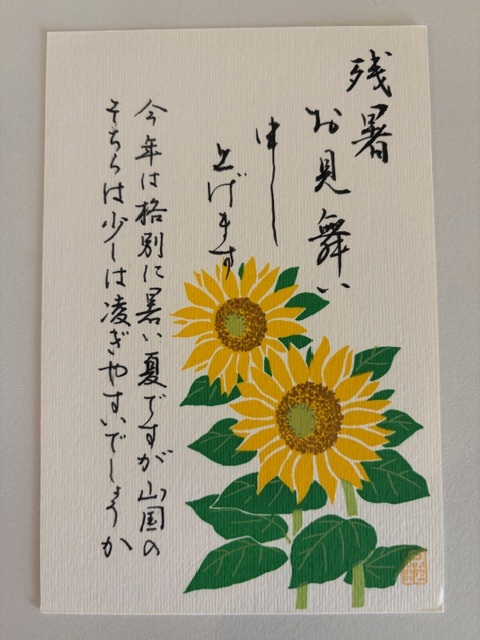 残暑
お見舞い
申し
上げます
今年は格別に暑い夏ですが山国の
そちらは少しは凌ぎやすいでしょうか